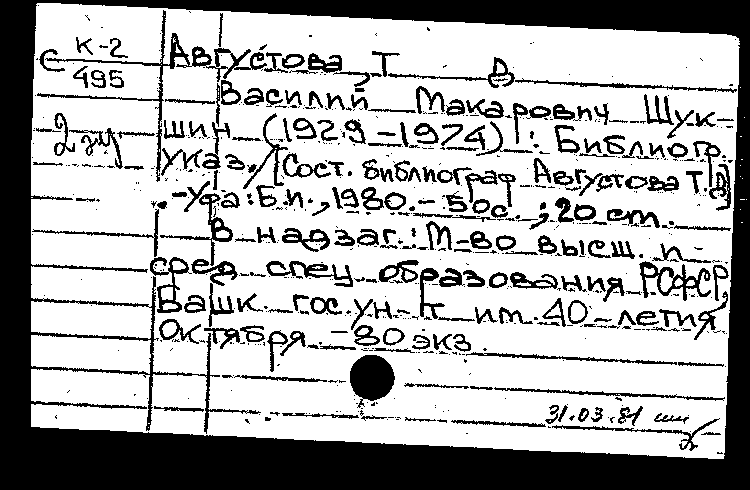 С К-2 Августова Т В
495 Василий Макарович Шук-
2 эк шин (1929-1974): Библиогр.
указ. / [Сост. библиограф Августова Т.В]
.-Уфа: Б.и., 1980.- 50с. ; 20 cm.
В надзаг.: М-во высш. и
сред. спец образования РСФСР,
Башк. гос. ун-т им. 40-летия
Октября. - 80 экз.
31.03.81